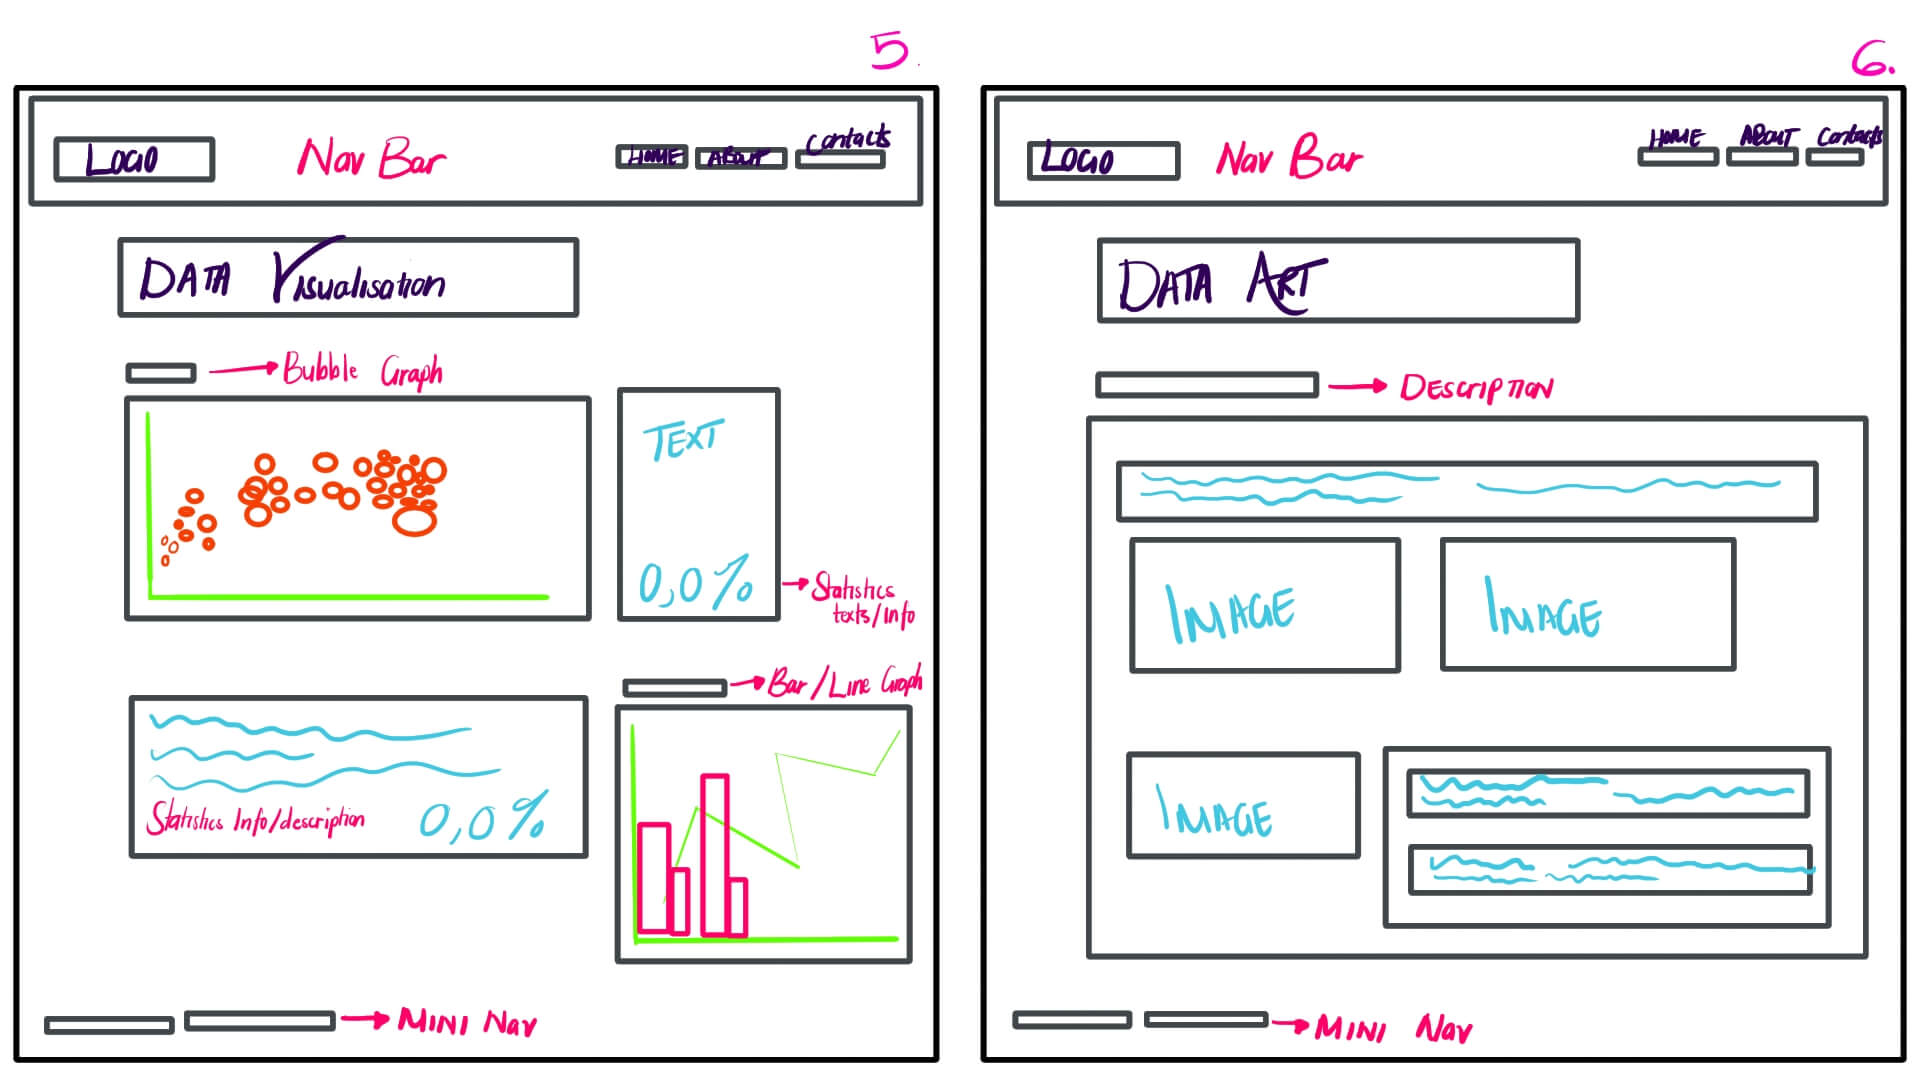 5.
LOGO
Nav Bar
HOME
ABOUT
Contacts
DATA Visualisation
Bubble Graph
TEXT
0,0%
Statistics
texts/info
Bar/Line Graph
Statistics Info/description
0,0%
MINI Nav
6.
LOGO
Nav Bar
HOME
ABOUT
Contacts
DATA ART
DESCRIPTION
IMAGE
IMAGE
IMAGE
MINI Nav